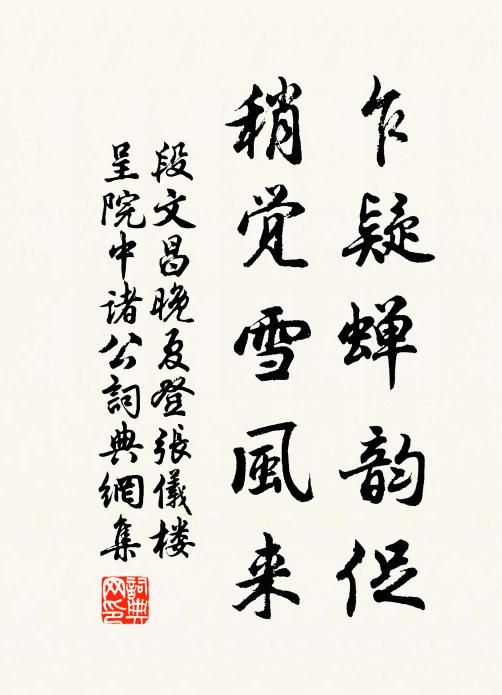 乍疑蝉韵促
稍觉雪風来
段文昌晚夏登張儀楼
呈院中诸公詞典網集
詞典网印